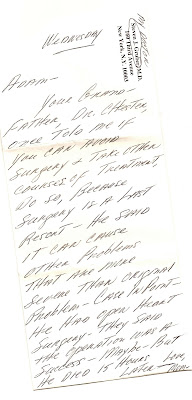 My Doctor
Steven J. Grubey, M.D.
Third Avenue
New York, N.Y.
Wednesday
Adam—
Your Grand-
Father, Dr. Chester,
once told me if
you can avoid
surgery & take other
courses of treatment,
do so, because
surgery is a last
resort— He said
it can cause
other problems
that are more
severe than original
problem— Case in point—
He had open heart
surgery— They said
the operation was a
success— Maybe— But
he died 15 hours
later—
Love,
Mom